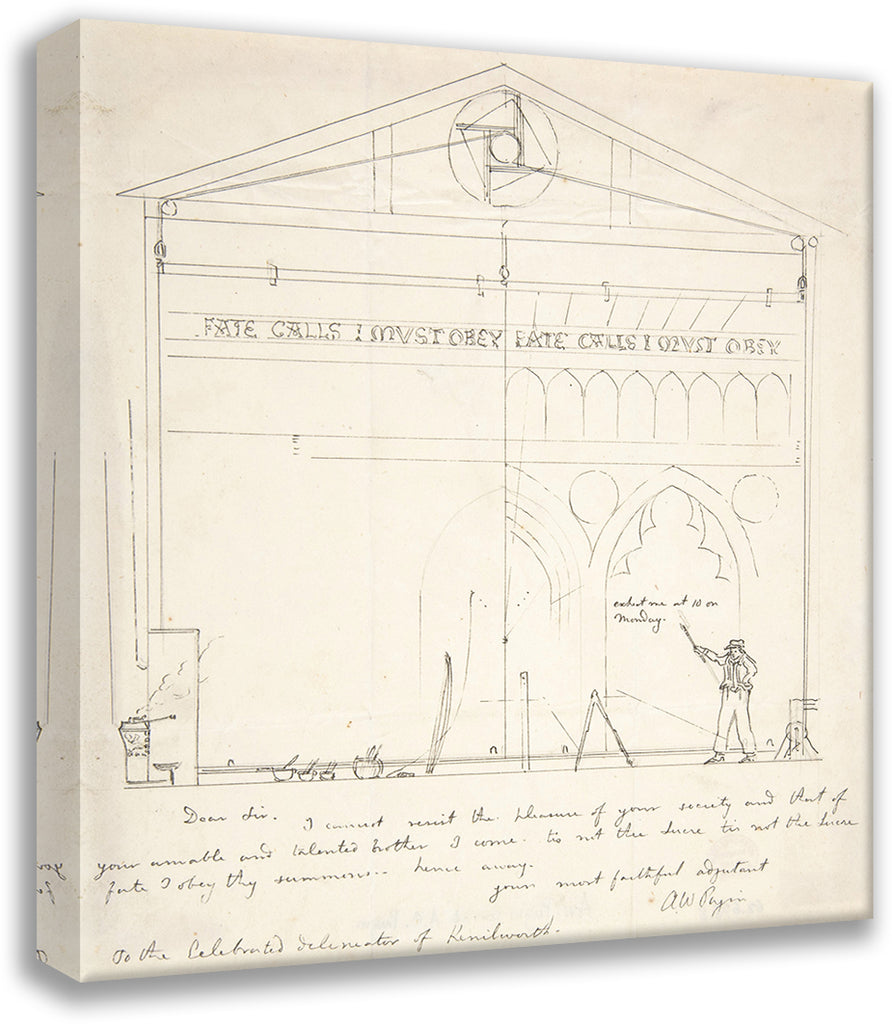 FATE CALLS I MVST OBEY FATE CALLS I MVST OBEY
exhect me at 10 on
Monday.
Dear Sir. I cannot resist the pleasure of your society and that of
your amiable and talented brother I come. tis not thee lucre tis not the lucre
fate I obey thy summons.. hence away.
your most faithful adjutant
A W Pugin
To the Celebrated delineator of Kenilworth.